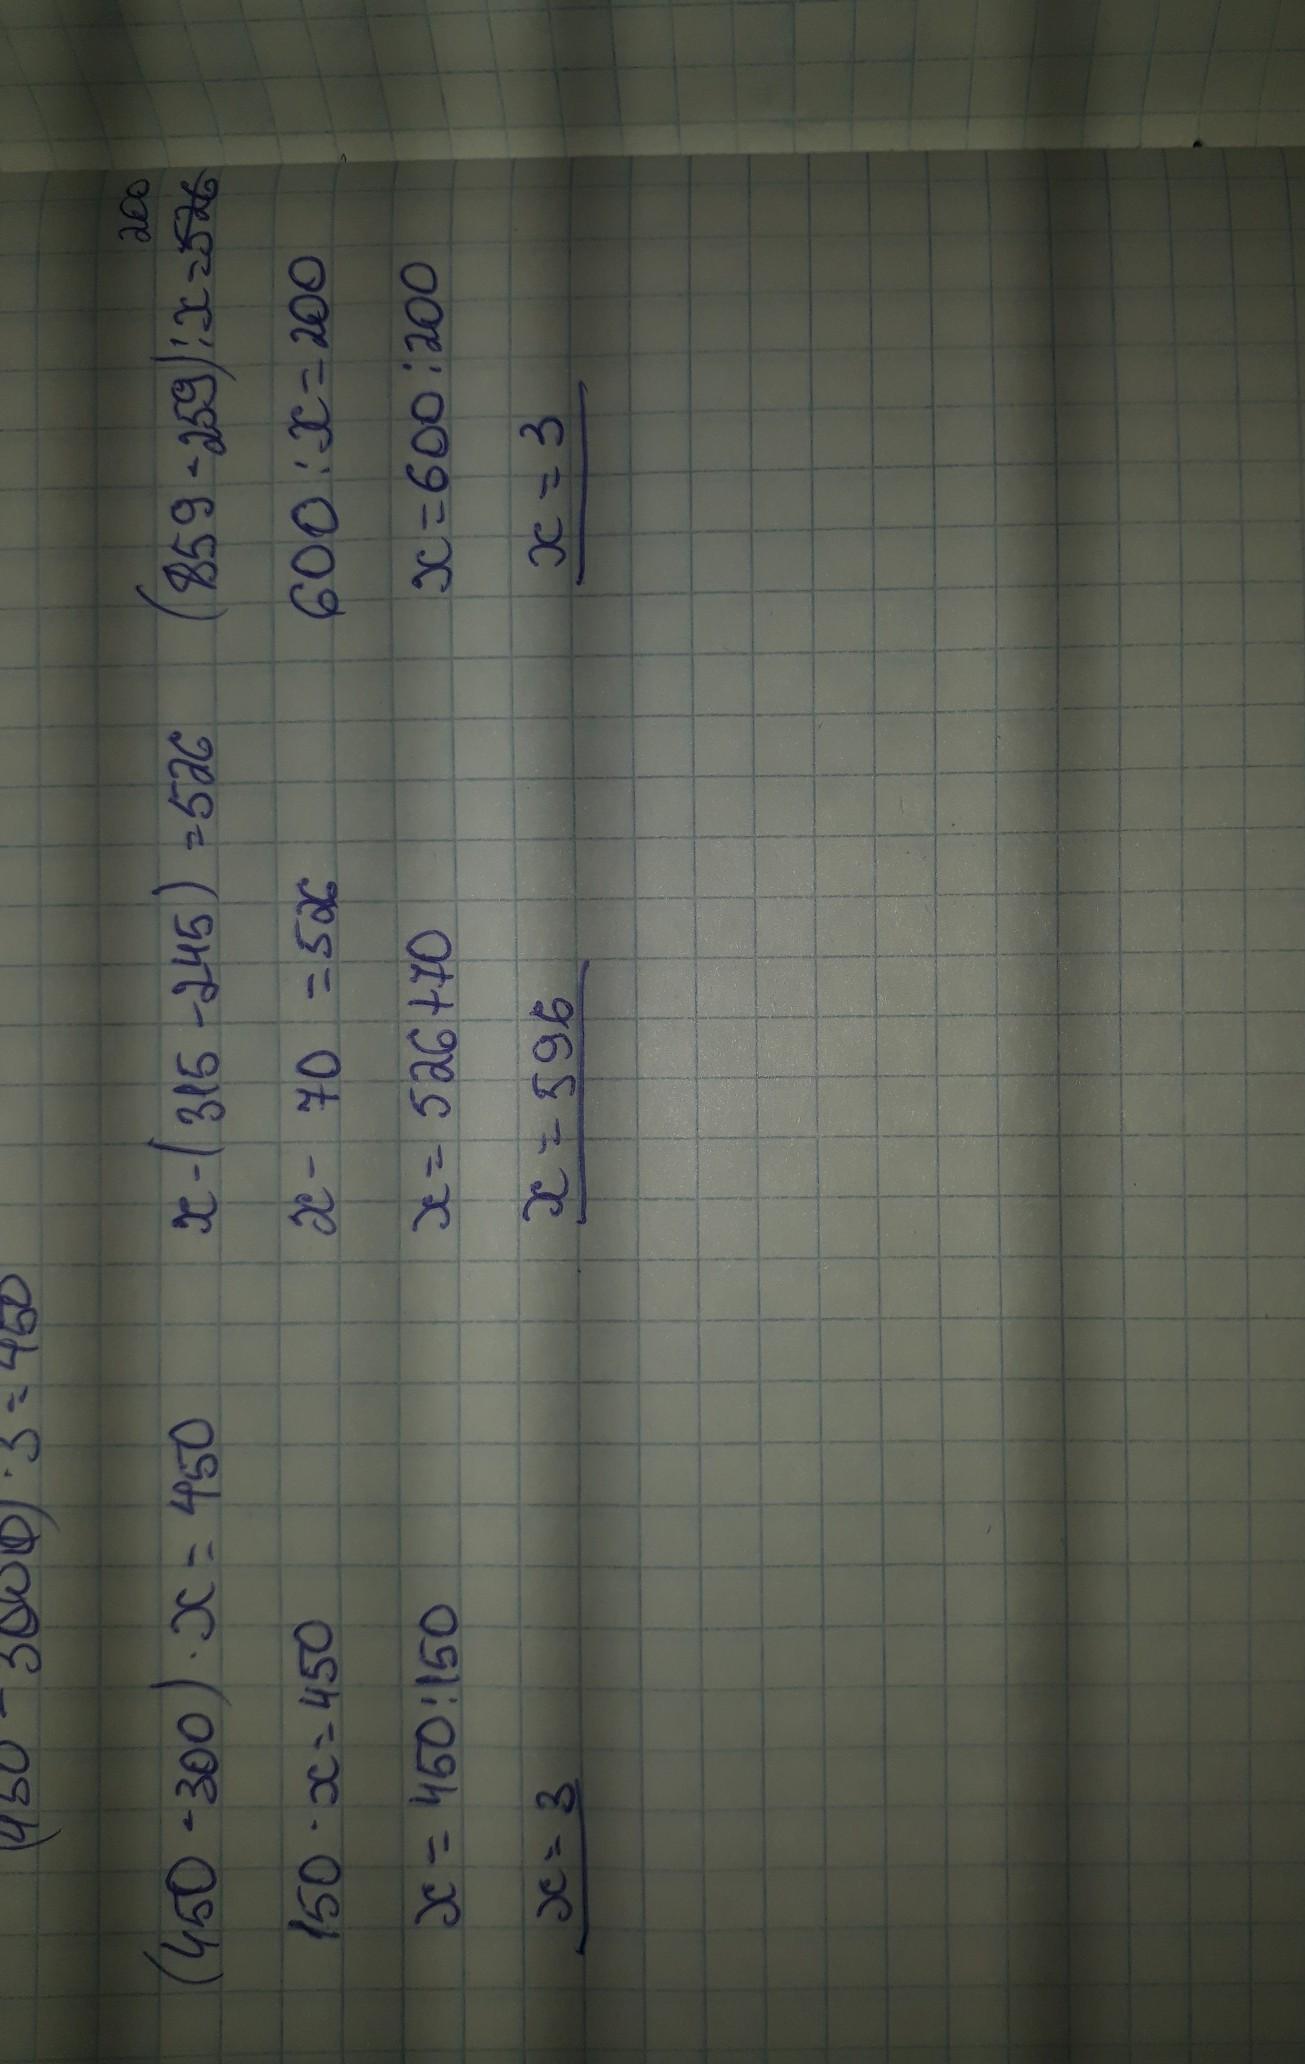 (450-300)·3=450
(450-300)·x=450
150·x=450
x=450:150
x=3
x-(315-245)=526
x- 70 =526
x=526+70
x=596
200
(859-259):x=526
600:x=200
x=600:200
x=3